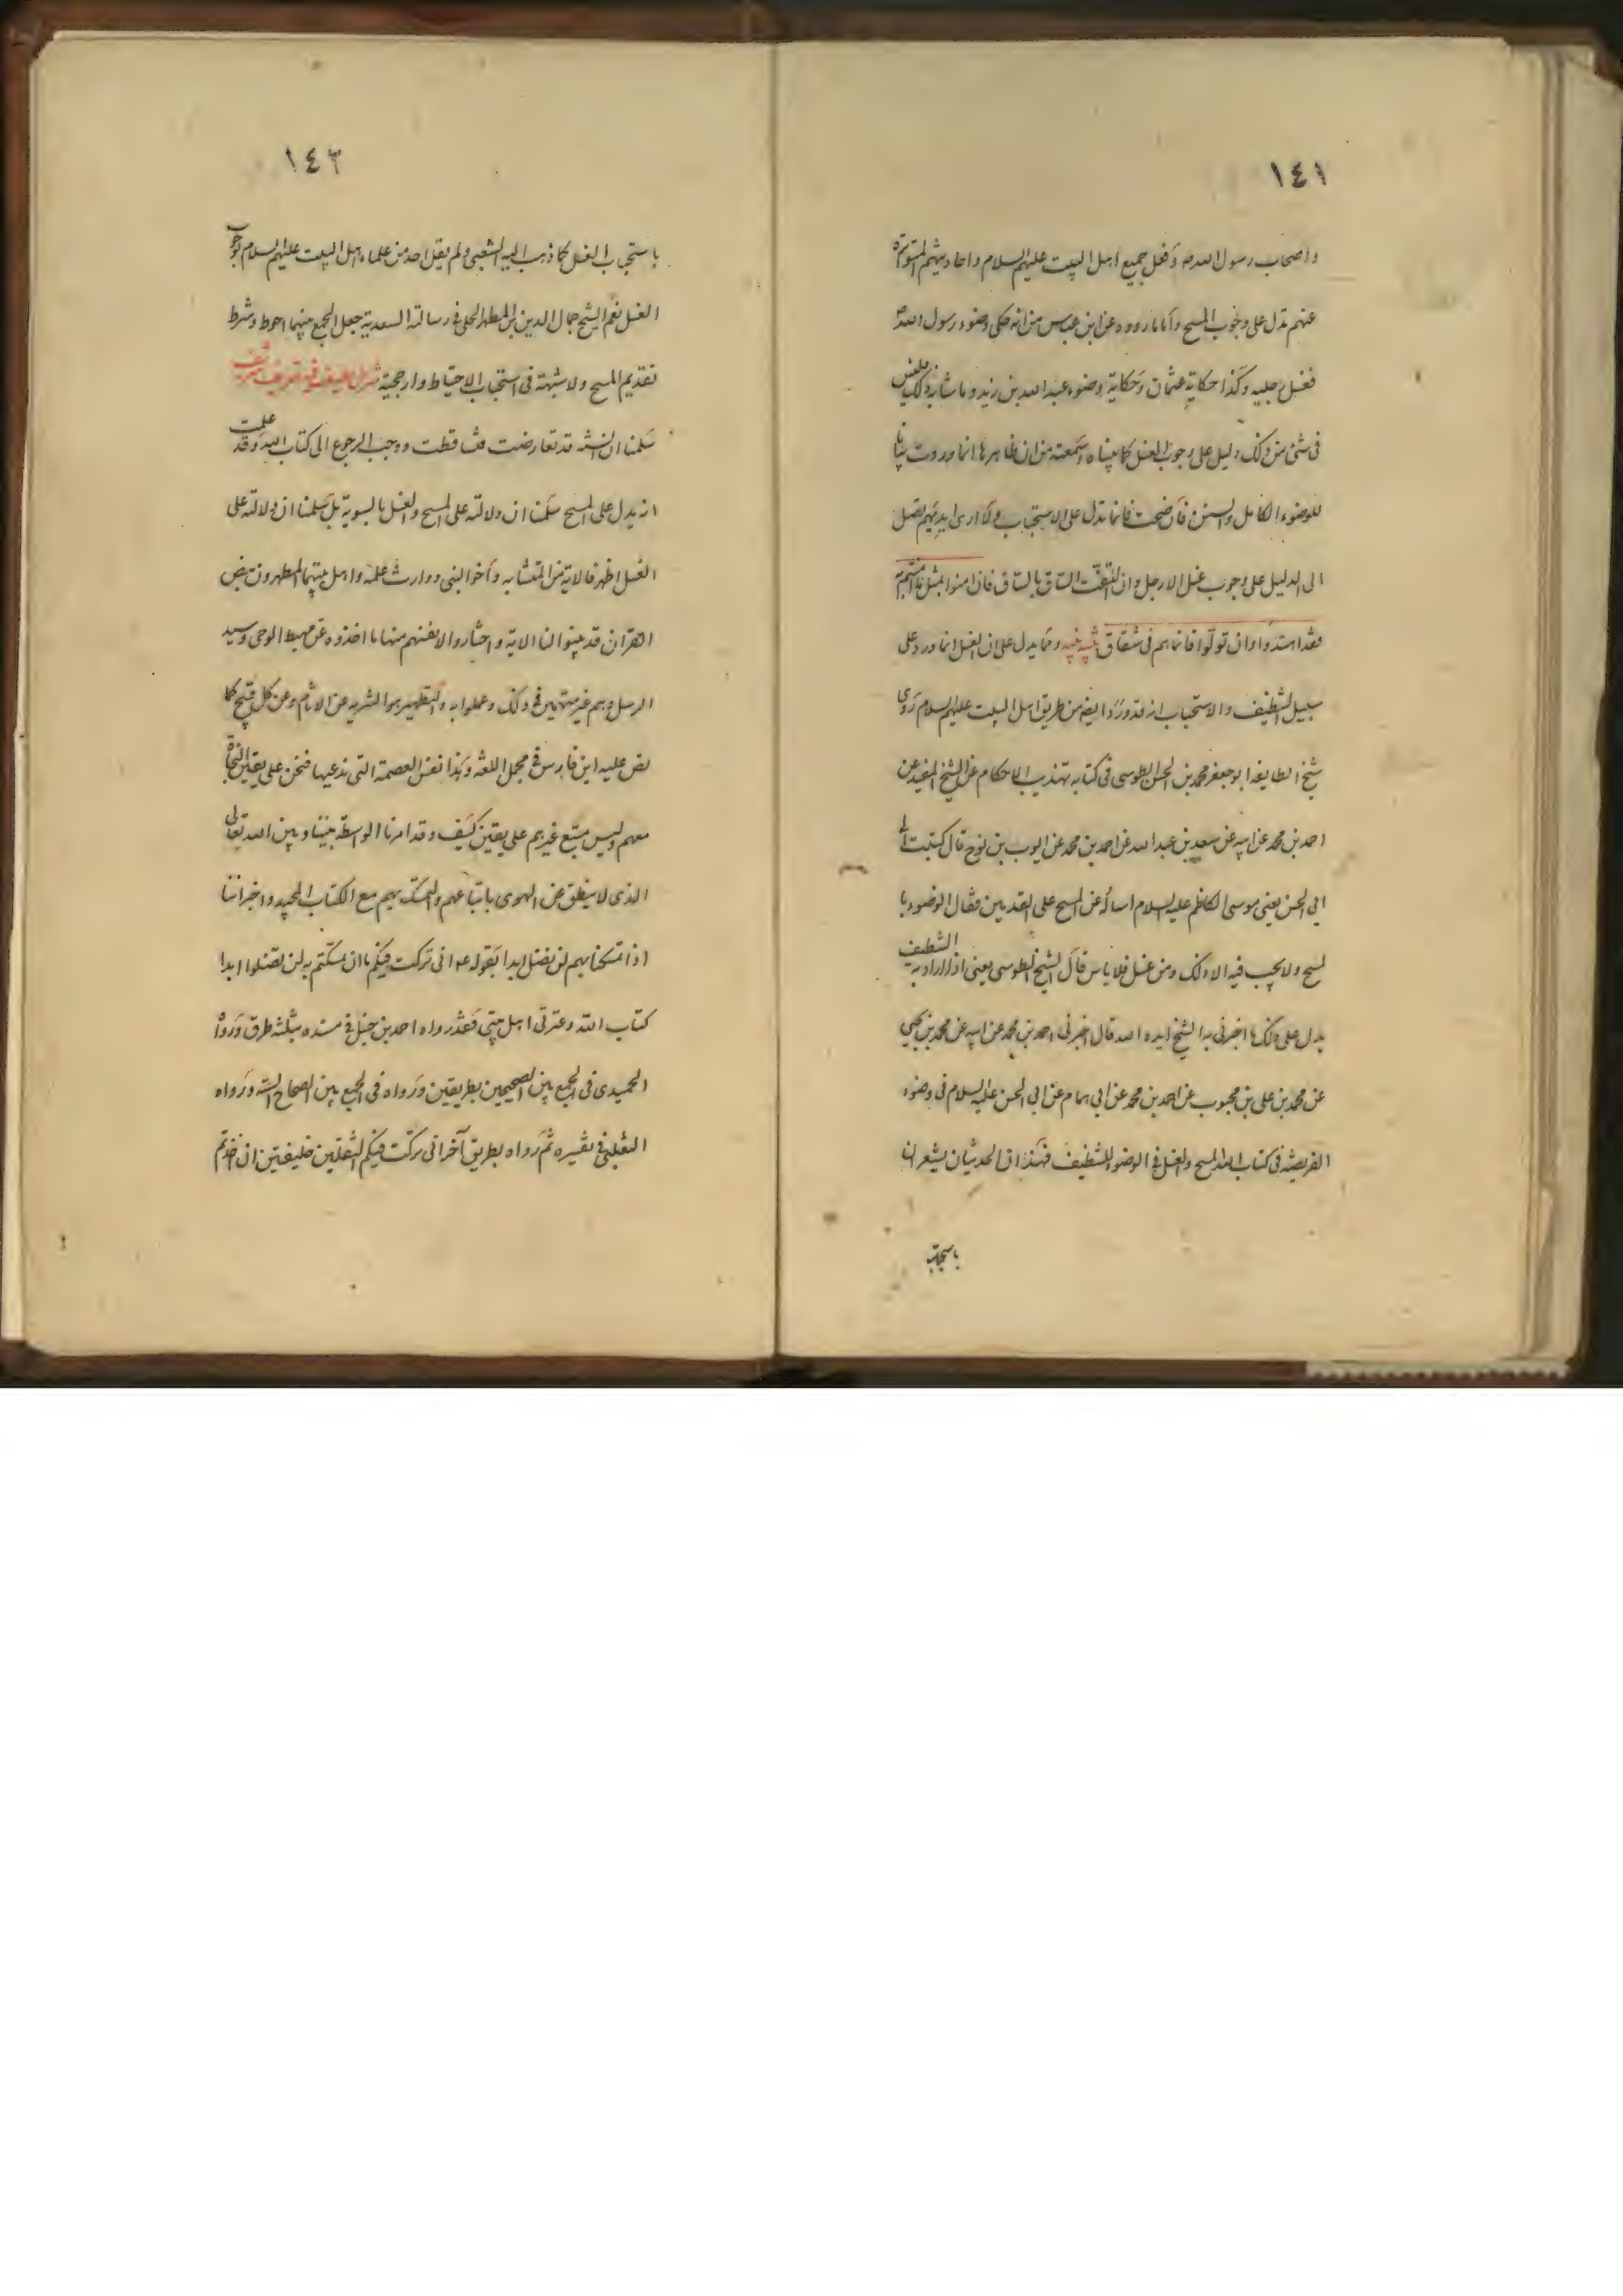 ١٤١
واصحاب رسول الله ص وفعل جميع اهل البيت عليهم السلام واحاديثهم المتواترة
عنهم تدل على وجوب المسح واما ما رووه عن ابن عباس من انه حكى وضوء رسول الله ص
فغسل رجليه وكذا حكاية عثمان وحكاية وضوء عبد الله بن زيد وما شابه ذلك فليس
فى شئ من ذلك دليل على وجوب الغسل كما بيناه سمعته من ان ظاهرها انما وردت بيانا
للوضوء الكامل والسنن فان صحت فانما تدل على الاستحباب ولا ارى ايديهم تصل
الى الدليل على وجوب غسل الارجل وان التفت الساق بالساق فان امنوا بمثل ما امنتم به
فقد اهتدوا وان تولوا فانما هم فى شقاق تنبيه ومما يدل على ان الغسل انما ورد على
سبيل التنظيف والاستحباب انه قد ورد ايضا من طريق اهل البيت عليهم السلام روى
شيخ الطايفة ابو جعفر محمد بن الحسن الطوسى فى كتابه تهذيب الاحكام عن الشيخ المفيد عن
احمد بن محمد عن ابيه عن سعد بن عبد الله عن احمد بن محمد عن ايوب بن نوح قال كتبت الى
ابي الحسن يعنى موسى الكاظم عليه السلام اساله عن المسح على القدمين فقال الوضوء با
لمسح ولا يجب فيه الا ذلك ومن غسل فلا باس قال الشيخ الطوسى يعنى اذا اراد به التنظيف
يدل على ذلك ما اخبرنى به الشيخ ايده الله قال اخبرنى احمد بن محمد عن ابيه عن محمد بن يحيى
عن محمد بن على بن محبوب عن احمد بن محمد عن ابي همام عن ابي الحسن عليه السلام فى وضوء
الفريضة فى كتاب الله المسح والغسل فى الوضوء للتنظيف فهذان الحديثان يشعران
باستحباب
١٤٣
باستحباب الغسل كما ذهب اليه الشعبى ولم يقل احد من علماء اهل البيت عليهم السلام بوجوب
الغسل نعم الشيخ جمال الدين بن المطهر الحلى فى رسالته السعدية جعل الجمع بينهما احوط وشرط
تقديم المسح ولا شبهة فى استحباب الاحتياط وارجحيته
سلمنا ان السنة قد تعارضت فتساقطت ووجب الرجوع الى كتاب الله وقد علمت
انه يدل على المسح سلمنا ان دلالته على المسح والغسل بالسوية بل سلمنا ان دلالته على
الغسل اظهر فالاية من المتشابه واخو النبى ووارث علمه واهل بيتهما المطهرون بنص
القران قد بينوا لنا الاية واختاروا لانفسهم منها ما اخذوه عن مهبط الوحى وسيد
الرسل وهم غير متهمين فى ذلك وعملوا به والتطهير هو التنزيه عن الاثم وعن كل قبيح كما
نص عليه ابن فارس فى مجمل اللغة وهذا نفس العصمة التى ندعيها فنحن على يقين النجاة
معهم وليس متبع غيرهم على يقين كيف وقد امرنا الواسطة بيننا وبين الله تعالى
الذى لا ينطق عن الهوى باتباعهم والتمسك بهم مع الكتاب المجيد واخبر اننا
اذا تمسكنا بهم لن نضل ابدا بقوله ص انى تركت فيكم ما ان تمسكتم به لن تضلوا ابدا
كتاب الله وعترتى اهل بيتى فقد رواه احمد بن حنبل فى مسنده بثلثه طرق ورواه
الحميدى فى الجمع بين الصحيحين بطريقين ورواه فى الجمع بين الصحاح الستة ورواه
الثعلبى فى تفسيره ثم رواه بطريق آخر انى تركت فيكم الثقلين خليفتين ان اخذتم